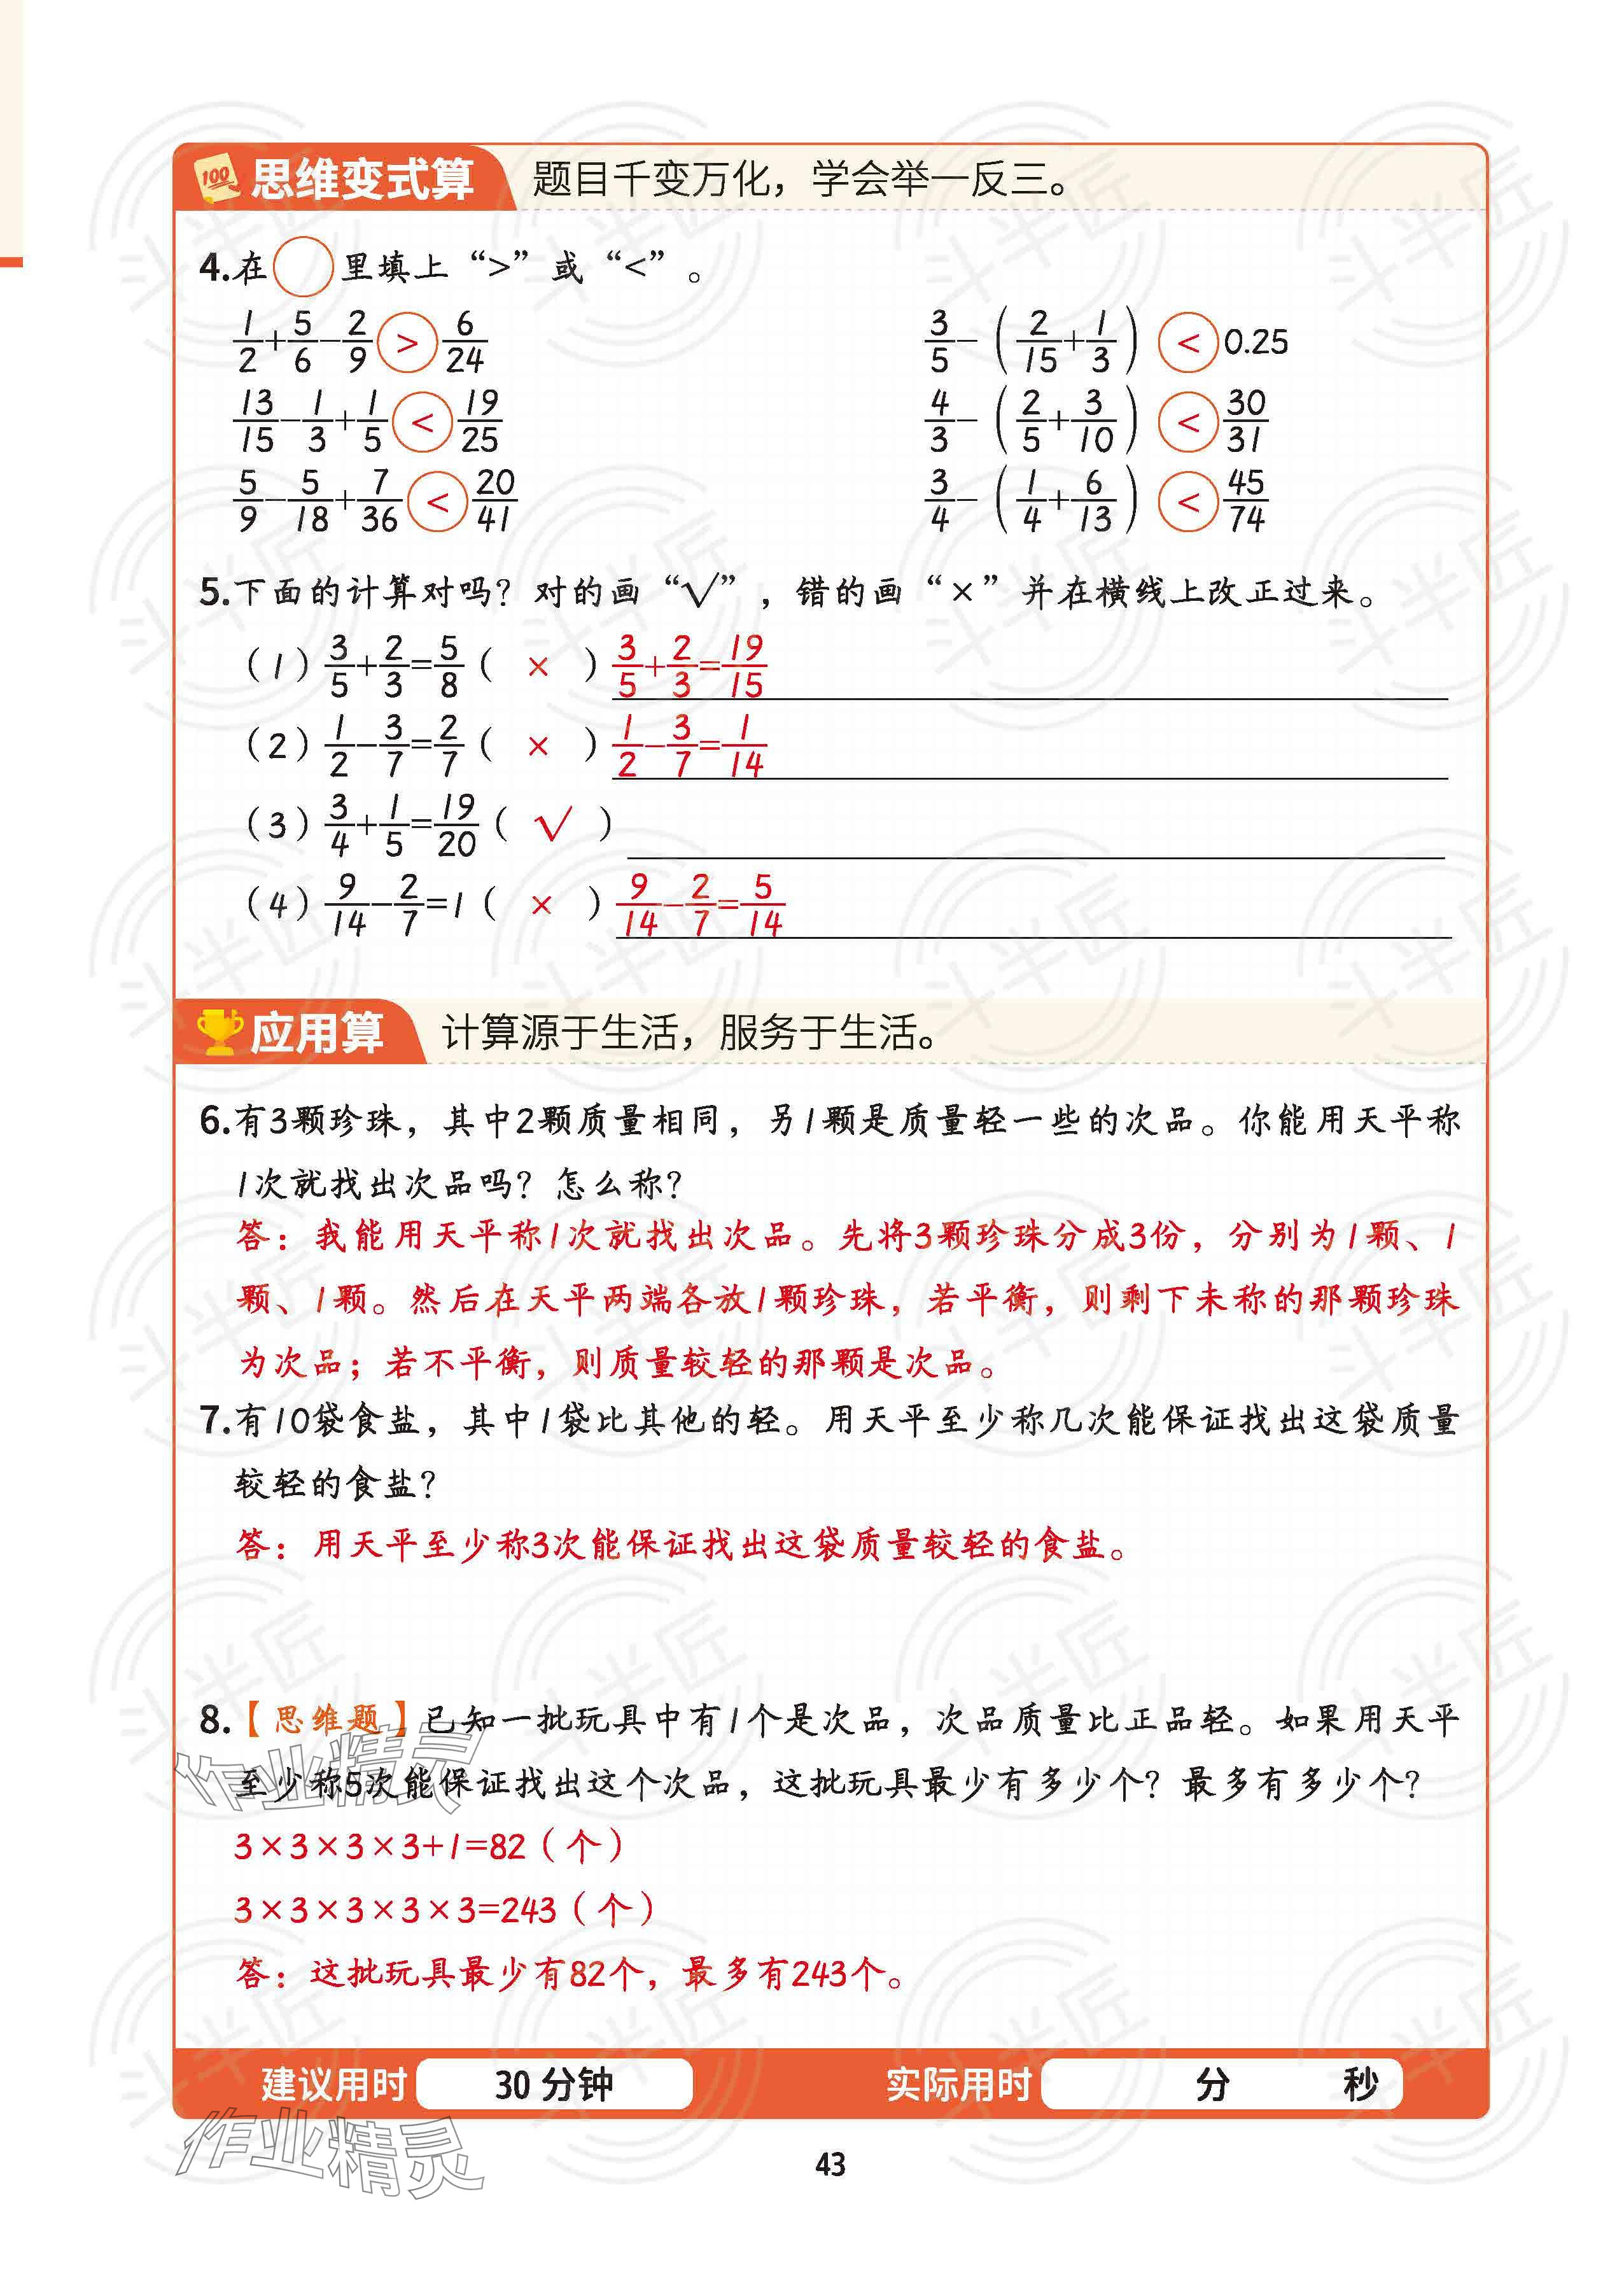 100 思维变式算 题目千变万化，学会举一反三。
4.在○里填上“>”或“<”。
1/2+5/6−2/9 > 6/24 3/5−(2/15+1/3) < 0.25
13/15−1/3+1/5 < 19/25 4/3−(2/5+3/10) < 30/31
5/9−5/18+7/36 < 20/41 3/4−(1/4+6/13) < 45/74
5.下面的计算对吗？对的画“√”，错的画“×”并在横线上改正过来。
（1）3/5+2/3=5/8（ × ）3/5+2/3=19/15
（2）1/2−3/7=2/7（ × ）1/2−3/7=1/14
（3）3/4+1/5=19/20（ √ ）
（4）9/14−2/7=1（ × ）9/14−2/7=5/14
应用算 计算源于生活，服务于生活。
6.有3颗珍珠，其中2颗质量相同，另1颗是质量轻一些的次品。你能用天平称
1次就找出次品吗？怎么称？
答：我能用天平称1次就找出次品。先将3颗珍珠分成3份，分别为1颗、1
颗、1颗。然后在天平两端各放1颗珍珠，若平衡，则剩下未称的那颗珍珠
为次品；若不平衡，则质量较轻的那颗是次品。
7.有10袋食盐，其中1袋比其他的轻。用天平至少称几次能保证找出这袋质量
较轻的食盐？
答：用天平至少称3次能保证找出这袋质量较轻的食盐。
8.【思维题】已知一批玩具中有1个是次品，次品质量比正品轻。如果用天平
至少称5次能保证找出这个次品，这批玩具最少有多少个？最多有多少个？
3×3×3×3+1=82（个）
3×3×3×3×3=243（个）
答：这批玩具最少有82个，最多有243个。
建议用时 30 分钟 实际用时 分 秒
43
作业精灵
作业精灵
斗半匠